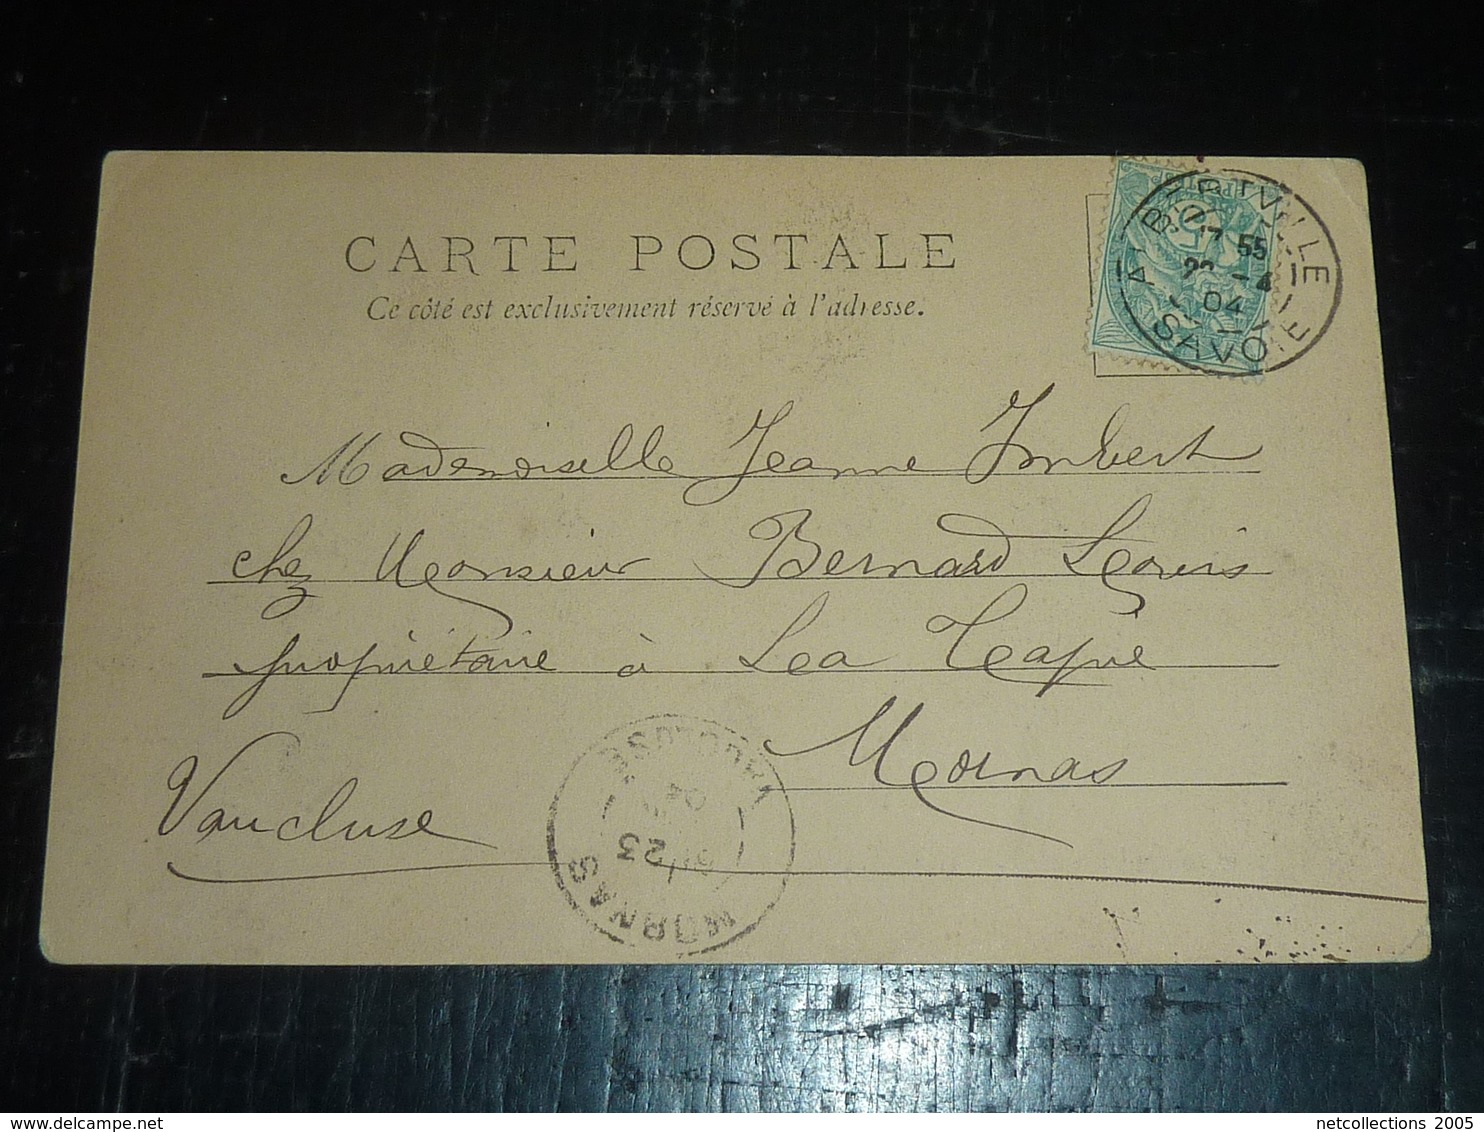 CARTE POSTALE
Ce côté est exclusivement réservé à l'adresse.
ALBERTVILLE
17 55
22 -4
04
SAVOIE
Mademoiselle Jeanne Imbert
chez Monsieur Bernard Louis
propriétaire à La Tapie
Mornas
Vaucluse
VAUCLUSE
04
23
MORNAS
netcollections 2005